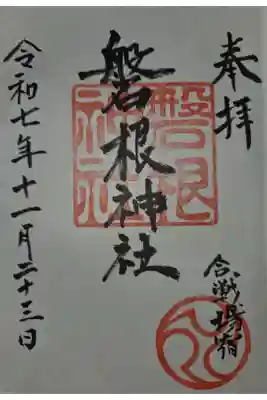 奉拝
合戦場宿
磐根神社
磐根神社
令和七年十一月二十三日